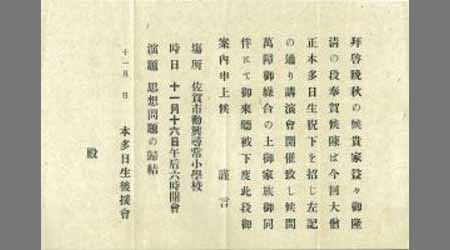 拜啓晩秋の候貴家益々御隆
淸の段奉賀候陳ば今囘大僧
正本多日生猊下を招じ左記
の通り講演會開催致し候間
萬障御繰合の上御家族御同
伴にて御來聽被下度此段御
案内申上候　　謹言
場所　佐賀市勸興尋常小學校
時日　十一月十六日午后六時開會
演題　思想問題の歸結
十一月　日　本多日生後援會
殿